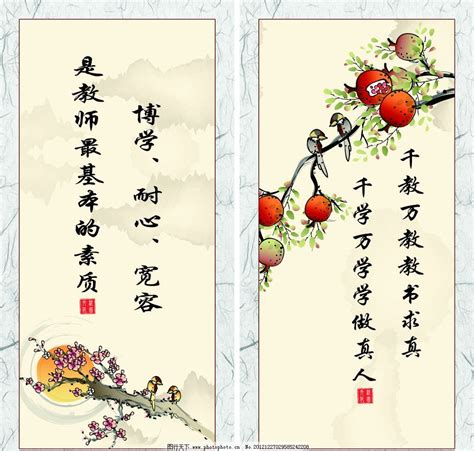 博学、耐心、宽容
是教师最基本的素质
千教万教教书求真
千学万学学做真人
图行天下 www.photophoto.cn No.20121227029585242208